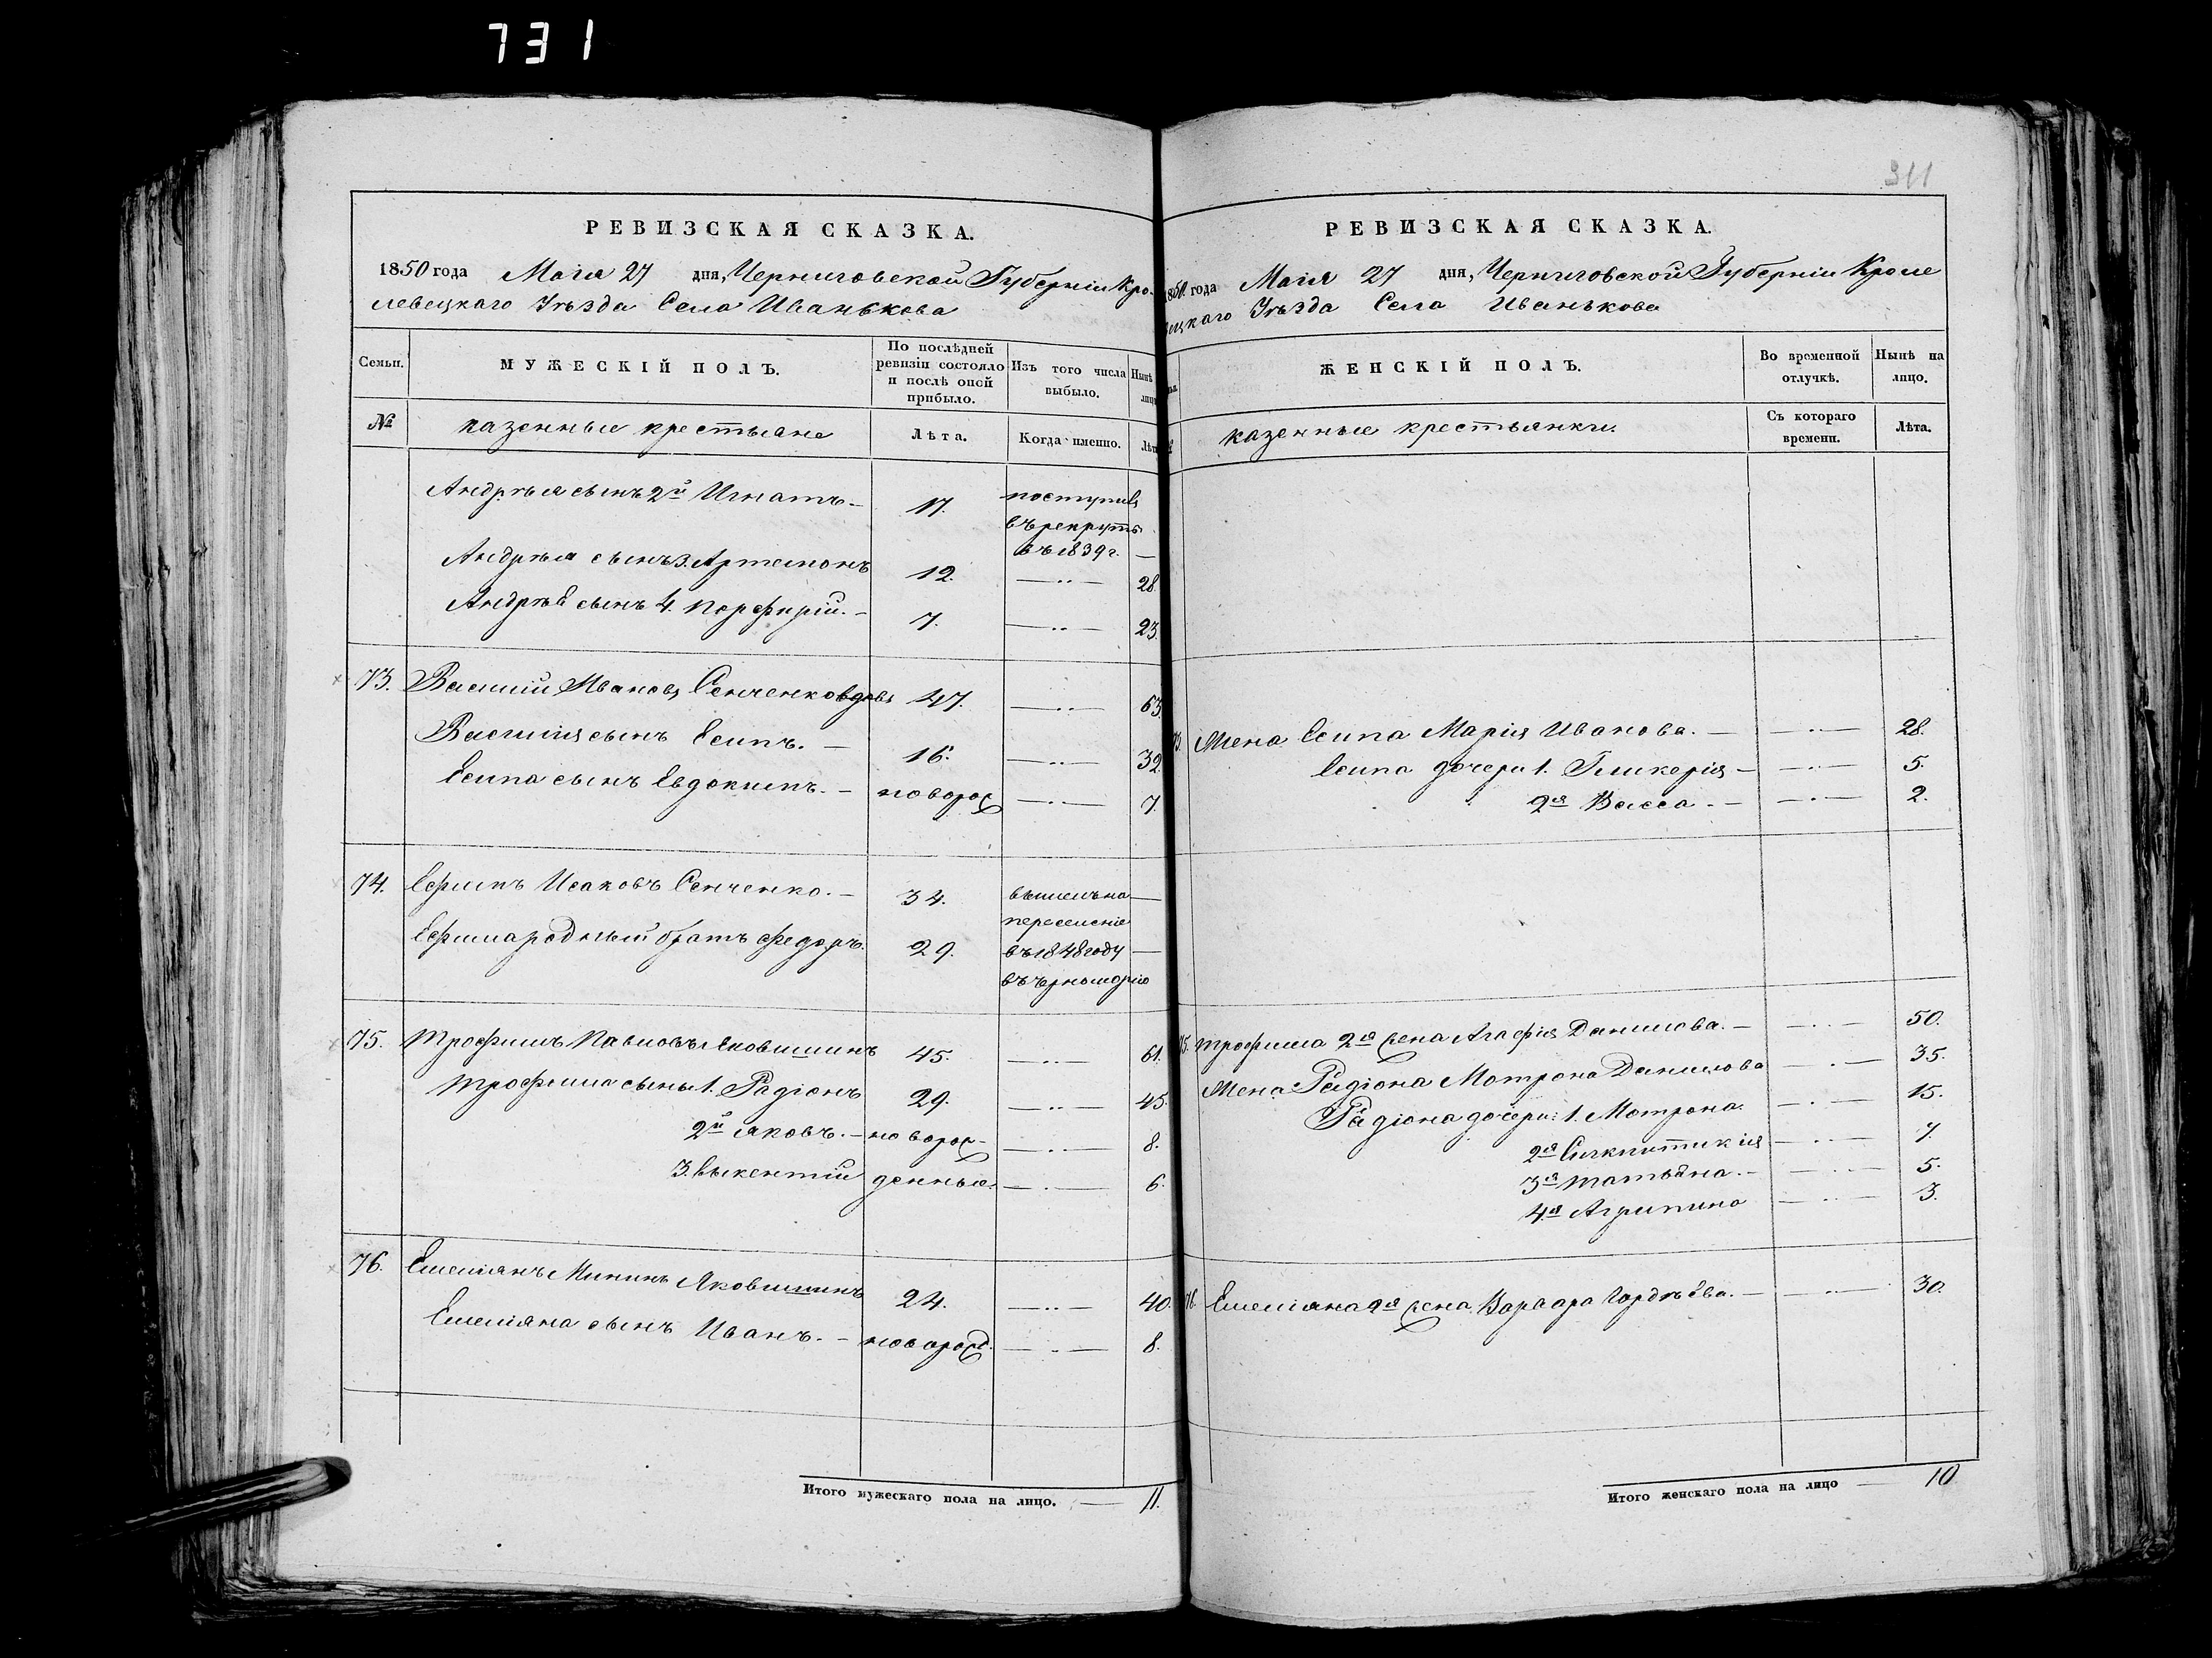 731
311
РЕВИЗСКАЯ СКАЗКА.
1850 года Маія 27 дня, Черниговской Губерніи Кро-
левецкаго Уѣзда Села Иванькова
Семьи.
МУЖЕСКІЙ ПОЛЪ.
По послѣдней ревизіи состояло и послѣ оной прибыло.
Изъ того числа выбыло.
Нынѣ
лицо
№
казенные крестьяне
Лѣта.
Когда именно.
Лѣт
Андрѣя сынъ 2й Игнатъ — 17. поступил
въ рекруты
въ 1839 г. —
Андрѣя сынъ 3. Артемонъ 12. — 28.
Андрѣя сынъ 4. Порфирій. — 7. — 23.
73. Василій Ивановъ Сенченко вдовъ 47. — 63.
Василія сынъ Есипъ. — 16. — 32.
Есипа сынъ Евдокимъ. — новорож — 7.
74. Ефимъ Исаковъ Сенченко. — 34. вышелъ на —
переселеніе
Ефима родный братъ Федоръ. 29. въ 1848 году —
въ Черноморію
75. Трофимъ Павловъ Яковишинъ 45. — 61.
Трофима сыны 1. Радіонъ 29. — 45.
2й Яковъ. — новорож- — 8.
3. Викентій денные. — 6.
76. Емеліянъ Мининъ Яковишинъ 24. — 40.
Емеліяна сынъ Иванъ. — новорожд. — 8.
Итого мужескаго пола на лицо. — 11.
РЕВИЗСКАЯ СКАЗКА.
1850 года Маія 27 дня, Черниговской Губерніи Кроле
вецкаго Уѣзда Села Иванькова
ЖЕНСКІЙ ПОЛЪ.
Во временной отлучкѣ.
Нынѣ на лицо.
казенные крестьянки.
Съ котораго времени.
Лѣта.
73. Жена Есипа Марія Иванова. — 28.
Есипа дочери 1. Гликерія — 5.
2я Васса — 2.
75. Трофима 2я жена Агафія Данилова. — 50.
Жена Радіона Мотрона Данилова — 35.
Радіона дочери: 1. Мотрона. — 15.
2я Синклитикія — 7.
3я Татьяна. — 5.
4я Агрипина — 3.
76. Емеліяна 2я жена Варвара Гордѣева. — 30.
Итого женскаго пола на лицо — 10